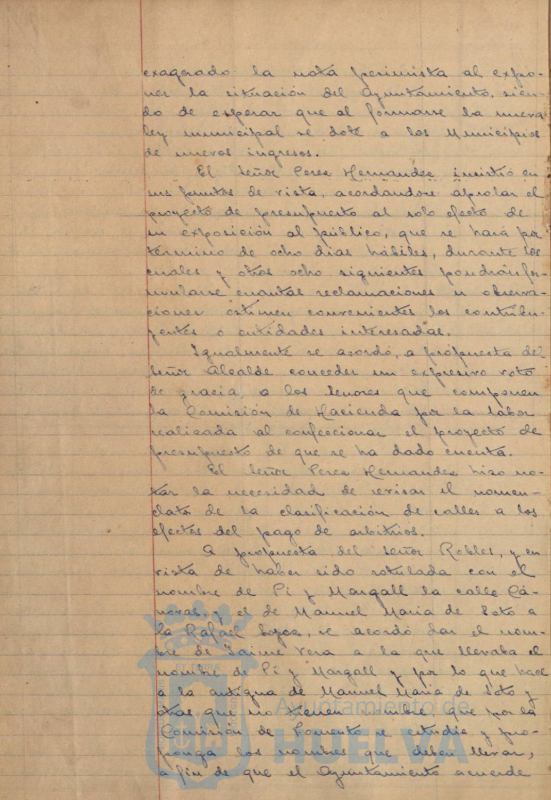 exagerado la nota pesimista al expo-
ner la situación del Ayuntamiento, sien-
do de esperar que al formarse la nueva
ley municipal se dote a los Municipios
de nuevos ingresos.
El Señor Perez Hernandez insistió en
sus puntos de vista, acordandose aprobar el
proyecto de presupuesto al solo efecto de
su exposición al público, que se hará por
término de ocho dias hábiles, durante los
cuales y otros ocho siguientes podrán for-
mularse cuantas reclamaciones u observa-
ciones estimen convenientes los contribu-
yentes o entidades interesadas.
Igualmente se acordó, a propuesta del
Señor Alcalde conceder un expresivo voto
de gracia, a los Señores que componen
la Comisión de Hacienda por la labor
realizada al confeccionar el proyecto de
presupuesto de que se ha dado cuenta.
El Señor Perez Hernandez hizo no-
tar la necesidad de revisar el nomen-
clato de la clasificación de calles a los
efectos del pago de arbitrios.
A propuesta del Señor Robles, y en
vista de haber sido rotulada con el
nombre de Pí y Margall la calle Cá-
novas, y el de Manuel Maria de Soto a
la Rafael se acordó dar el nom-
bre de Jaime Vera a la que llevaba el
nombre de Pí y Margall y por lo que hace
a la antigua de Manuel Maria de Soto y
otras que no tienen nombre, que por la
Comisión de Fomento se estudie y pro-
ponga los nombres que deben llevar,
a fin de que el Ayuntamiento acuerde
Ayuntamiento de
HUELVA